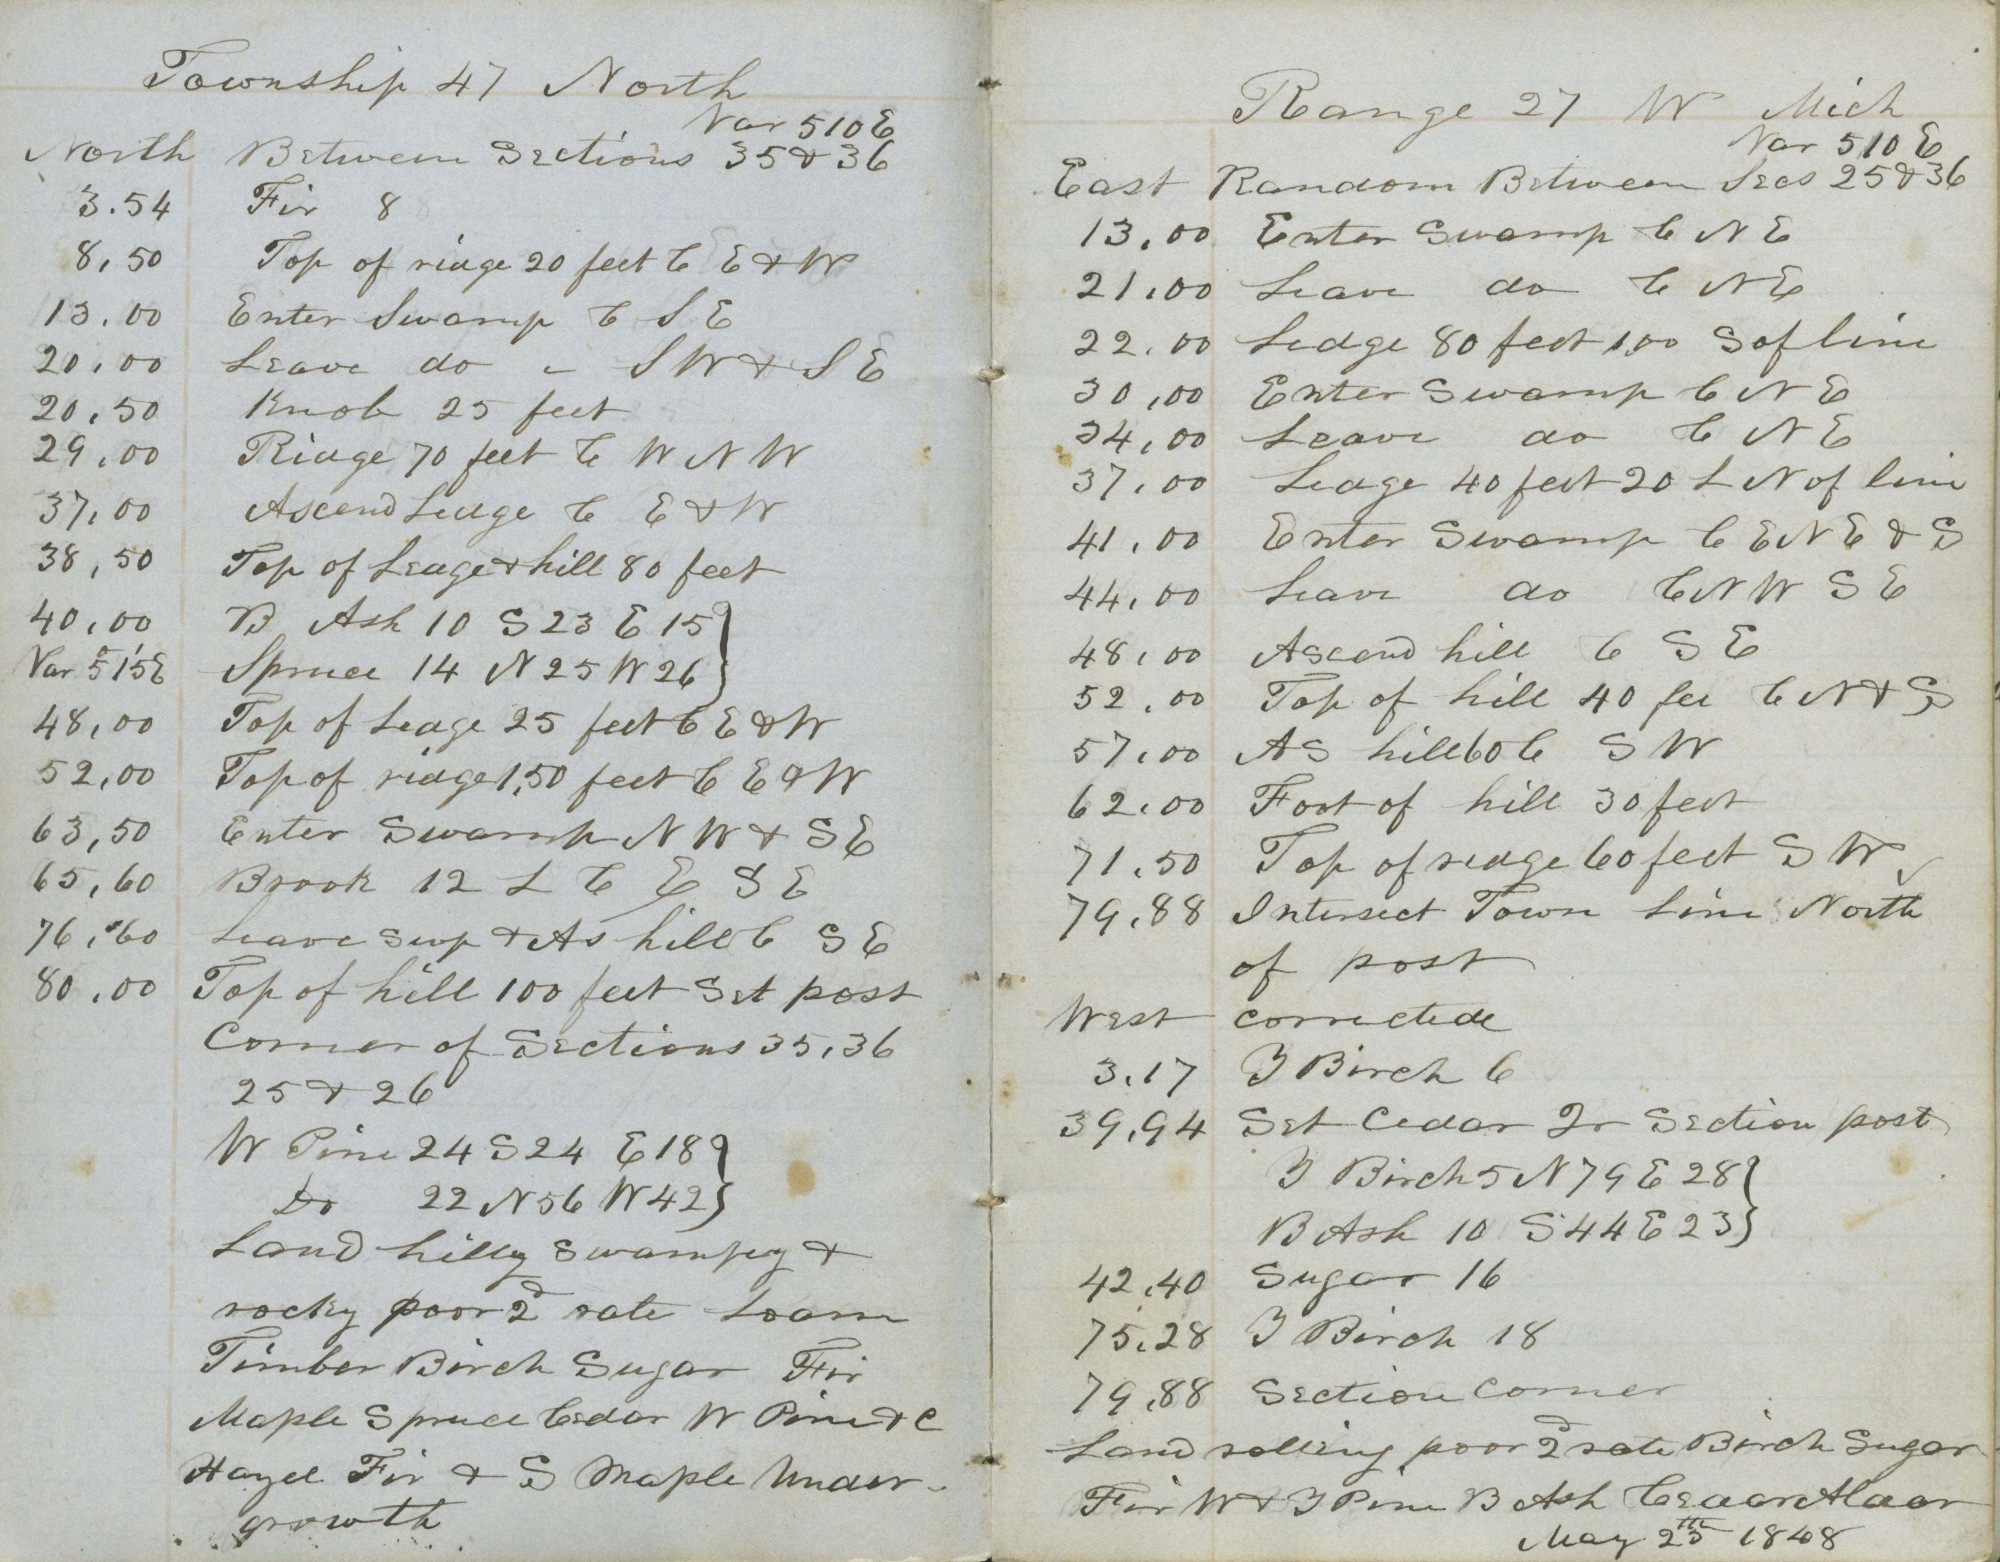 Township 47 North
Var 5 10 E
North Between Sections 35 & 36
3.54 Fir 8
8,50 Top of ridge 20 feet C E & W
13,00 Enter Swamp C S E
20,00 Leave do - S W & S E
20,50 Knob 25 feet
29,00 Ridge 70 feet C W N W
37,00 Ascend Ledge C E & W
38,50 Top of Ledge & hill 80 feet
40,00 B Ash 10 S 23 E 15
Var 5° 15' E Spruce 14 N 25 W 26
48,00 Top of Ledge 25 feet C E & W
52,00 Top of ridge 1,50 feet C E & W
63,50 Enter Swamp N W & S E
65,60 Brook 12 L C E S E
76,60 Leave Swp & As hill C S E
80,00 Top of hill 100 feet Set post
Corner of Sections 35,36
25 & 26
W Pine 24 S 24 E 18
Do 22 N 56 W 42
Land hilly swampy &
rocky poor 2d rate Loam
Timber Birch Sugar Fir
Maple Spruce Cedar W Pine & C
Hazel Fir & S Maple Under-
growth
Range 27 W Mich
Var 5 10 E
East Random Between Secs 25 & 36
13,00 Enter Swamp C N E
21,00 Leave do C N E
22,00 Ledge 80 feet 1,00 S of line
30,00 Enter Swamp C N E
34,00 Leave do C N E
37,00 Ledge 40 feet 20 L N of line
41,00 Enter Swamp C E N E & S
44,00 Leave do C N W S E
48,00 Ascend hill C S E
52,00 Top of hill 40 fee C N & S
57,00 As hill 60 C S W
62,00 Foot of hill 30 feet
71,50 Top of ridge 60 feet S W
79,88 Intersect Town Line North
of post
West corrected
3.17 Y Birch 6
39,94 Set Cedar Qr Section post
Y Birch 5 N 79 E 28
B Ash 10 S 44 E 23
42,40 Sugar 16
75,28 Y Birch 18
79,88 Section Corner
Land rolling poor 2d rate Birch Sugar
Fir W & Y Pine B Ash Cedar Alder
May 25th 1848